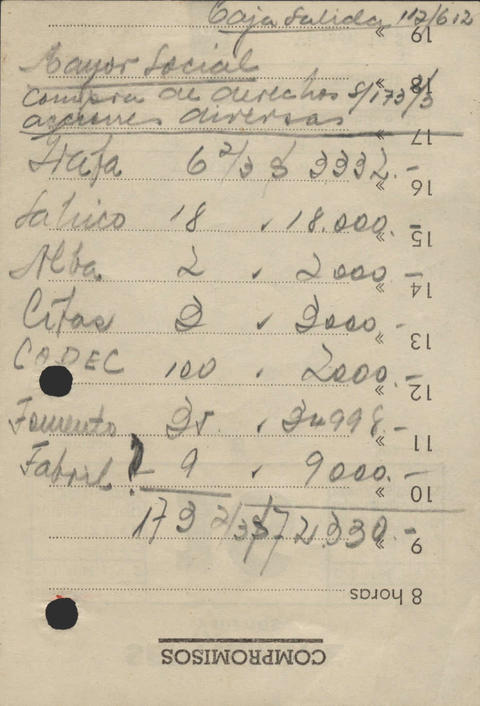 Caja Salida 117/612
19 »
Mayor Social
18 »
Compra de derechos s/173 2/3
acciones diversas
17 »
6 2/3 $ 3332.-
16 »
18 " 18.000.-
15 »
Alba 2 " 2000.-
14 »
Citas 3 " 3000.-
13 »
CADEC 100 " 2000.-
12 »
Fomento 35 " 34998.-
11 »
Fabril 9 " 9000.-
10 »
173 2/3 $72.330.-
9 »
8 horas
COMPROMISOS